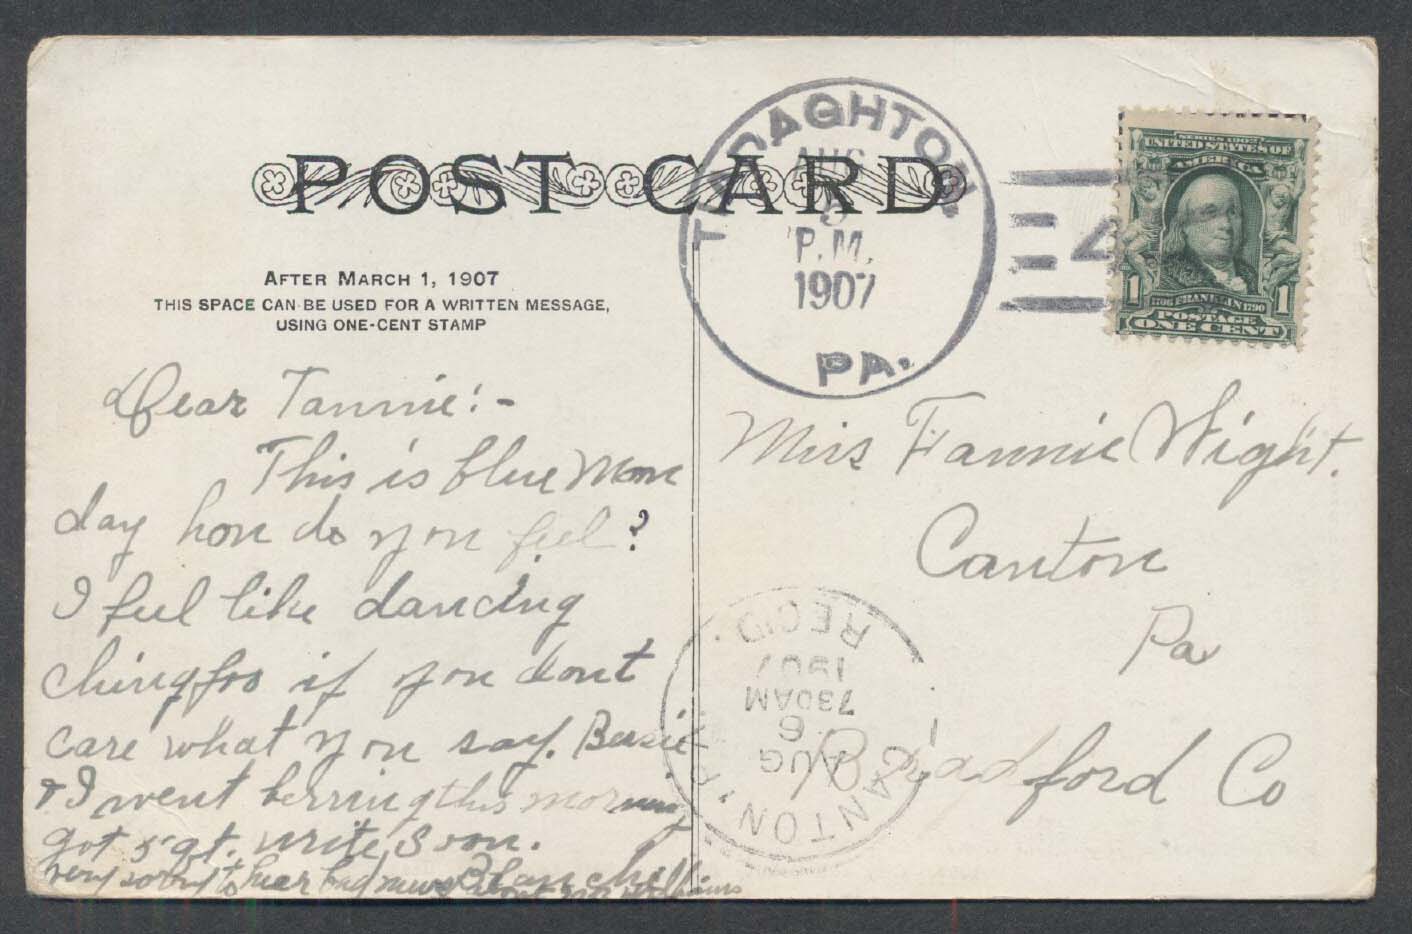 POST CARD
AFTER MARCH 1, 1907
THIS SPACE CAN BE USED FOR A WRITTEN MESSAGE,
USING ONE-CENT STAMP
Dear Fannie:-
This is blue Mon
day how do you feel?
I feel like dancing
chingfoo if you dont
care what you say. Bessie
& I went berrying this morning
got 5 qt. write soon.
Blanche
very sorry to hear bad news about Williams
TIADAGHTON,
AUG
5
P.M.
1907
PA.
4
SERIES 1902
UNITED STATES OF
AMERICA
1 1706 FRANKLIN 1790 1
POSTAGE
ONE CENT
Miss Fannie Wight.
Canton
Pa
Bradford Co
CANTON, PA.
AUG
6
730AM
1907
REC'D.